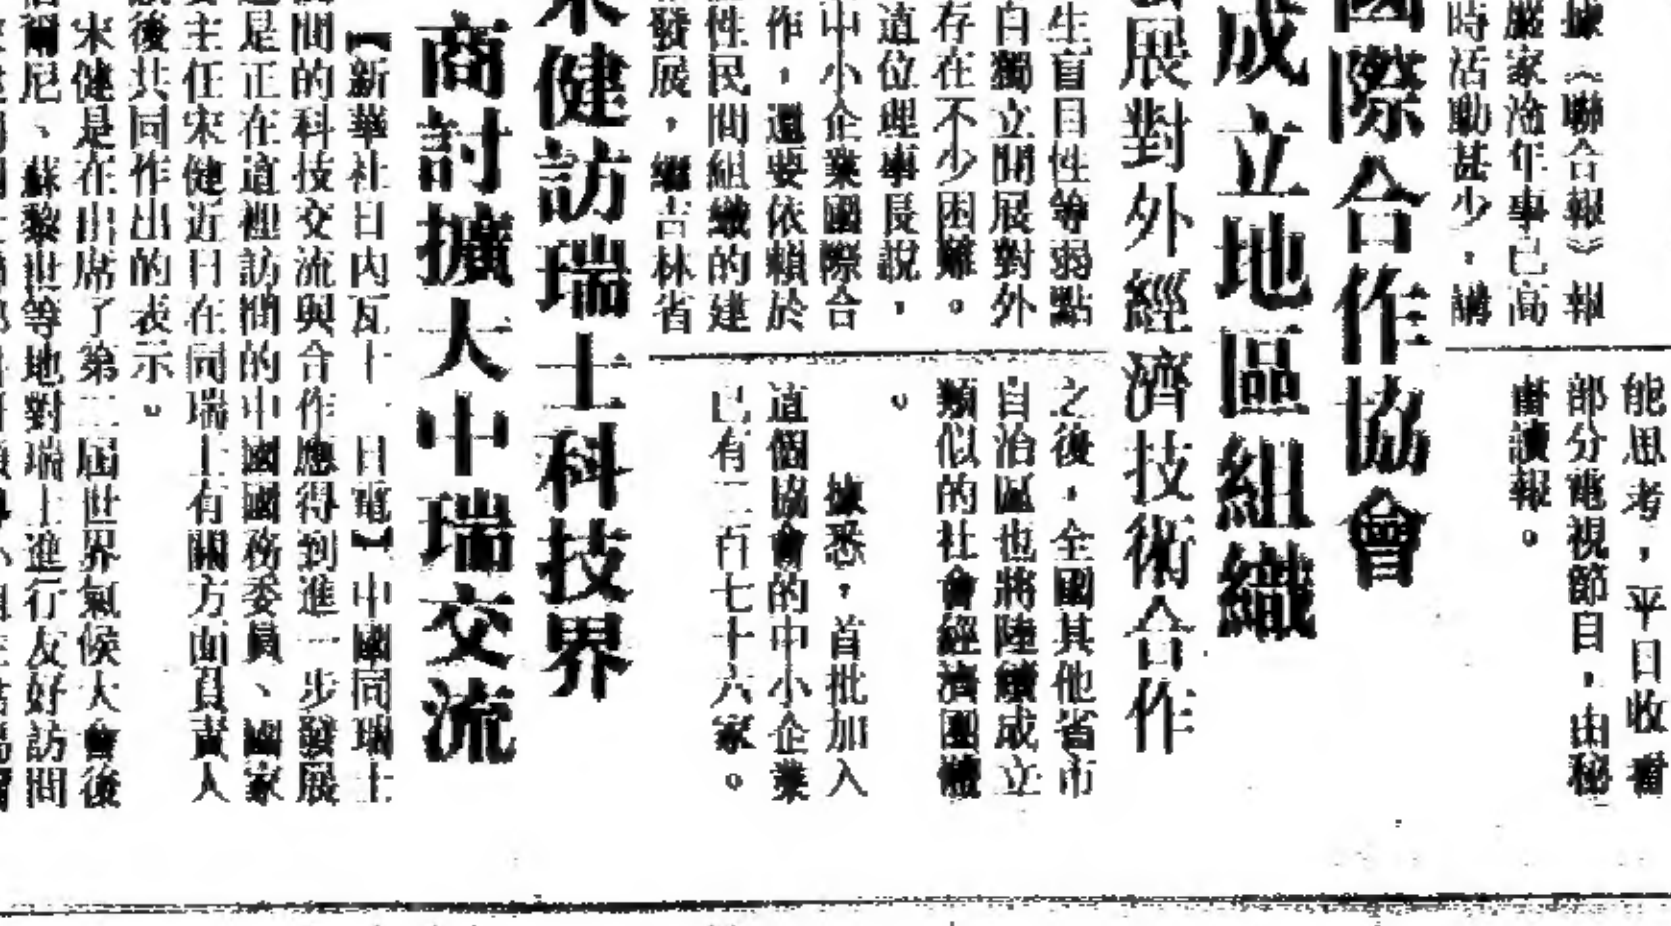 據《聯合報》報
嚴家淦年事已高
時活動甚少，講
能思考，平日收看
部分電視節目，由秘
書讀報。
國際合作協會
成立地區組織
發展對外經濟技術合作
生盲目性等弱點
自獨立開展對外
存在不少困難。
這位理事長說，
中小企業國際合
作，還要依賴於
性民間組織的建
發展，繼吉林省
之後，全國其他省市
自治區也將陸續成立
類似的社會經濟團體
。
據悉，首批加入
這個協會的中小企業
已有二百七十六家。
宋健訪瑞士科技界
商討擴大中瑞交流
【新華社日內瓦十一日電】中國同瑞士
間的科技交流與合作應得到進一步發展
是正在這裡訪問的中國國務委員、國家
主任宋健近日在同瑞士有關方面負責人
後共同作出的表示。
宋健是在出席了第二屆世界氣候大會後
爾尼、蘇黎世等地對瑞士進行友好訪問